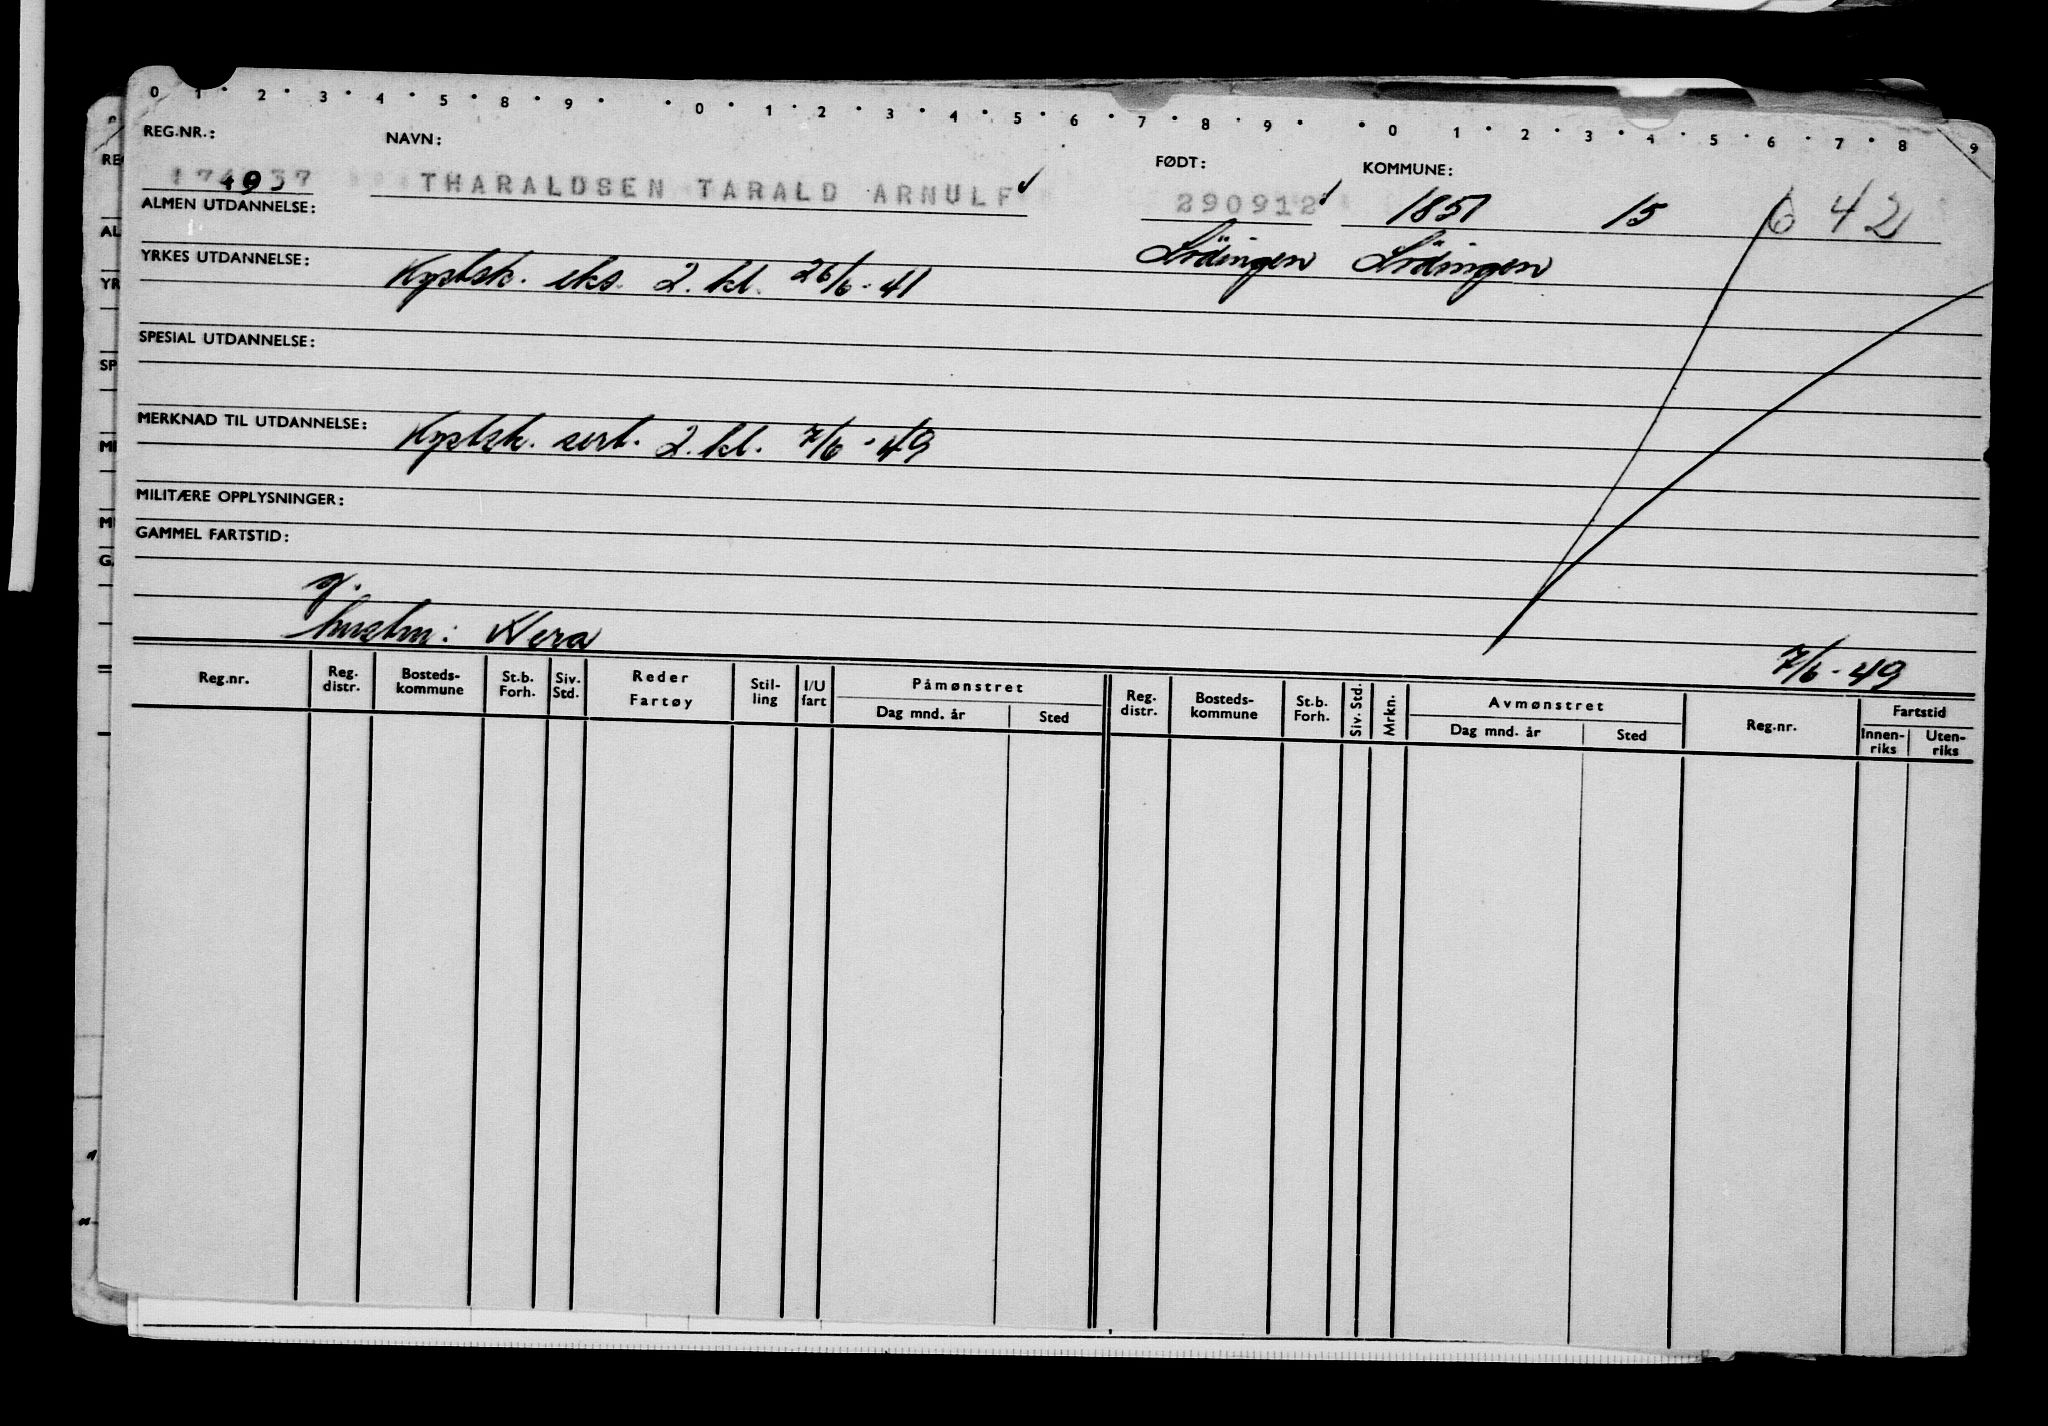 0 1 2 3 4 5 8 9 0 1 2 3 4 5 6 7 8 9 0 1 2 3 4 5 6 7 8 9
REG.NR.: NAVN: FØDT: KOMMUNE:
THARALDSEN TARALD ARNULF 290912 1851 15 642
ALMEN UTDANNELSE: Lödingen Lödingen
YRKES UTDANNELSE: Kystsk. eks. 2. kl. 26/6-41
SPESIAL UTDANNELSE:
MERKNAD TIL UTDANNELSE: Kystsk. sert. 2. kl. 7/6-49
MILITÆRE OPPLYSNINGER:
GAMMEL FARTSTID:
g.
hustru: Nera 7/6-49
Reg.nr. Reg. distr. Bosteds-kommune St.b. Forh. Siv. Std. Reder Fartøy Stil-ling I/U fart Påmønstret Dag mnd. år Sted Reg. distr. Bosteds-kommune St.b. Forh. Siv. Std. Mrkn. Avmønstret Dag mnd. år Sted Reg.nr. Fartstid Innen-riks Uten-riks